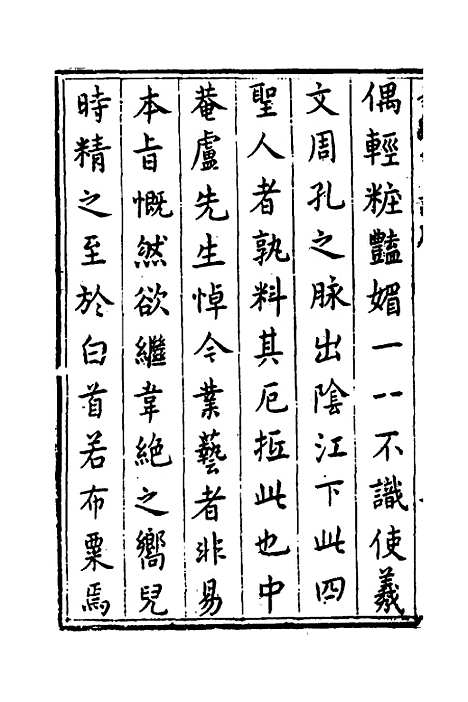 偶輕粧豔媚一一不識使羲
文周孔之脉出陰江下此四
聖人者孰料其厄抵此也中
菴盧先生悼今業藝者非易
本旨慨然欲繼韋絶之嚮兒
時精之至於白首若布粟焉